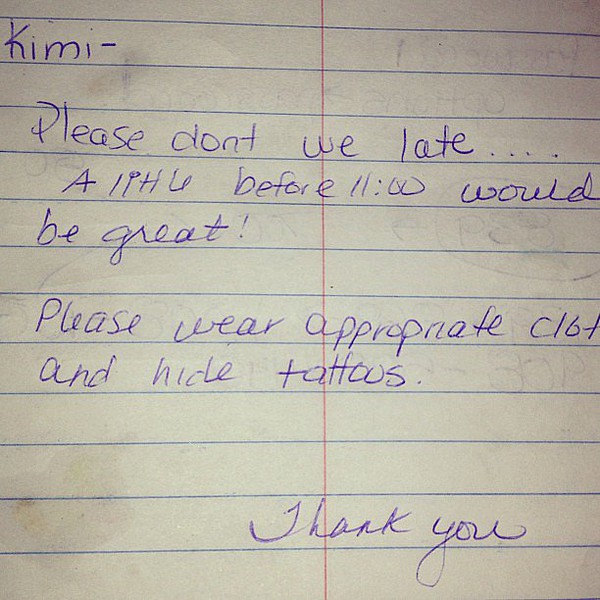 Kimi-
Please dont we late.....
A little before 11:00 would
be great!
Please wear appropriate clot
and hide tattous.
Thank you